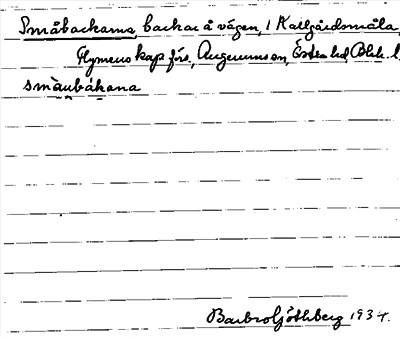 Småbackarna, backar å vägen, i Kallgårdsmåla,
Flymens kap förs, Augerums sn, Östra hd Blek. l
smàubákana
Barbro Göthberg 1934.